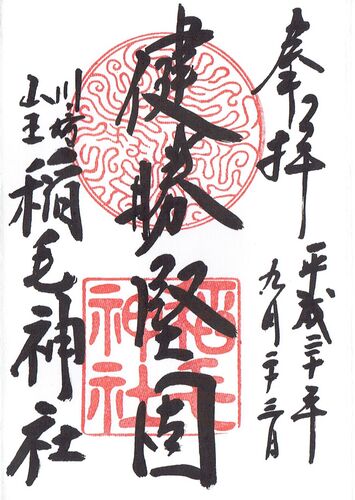 奉拝
平成二十年
九月二十三日
健勝堅固
川崎
山王
稲毛神社
稲毛
神社